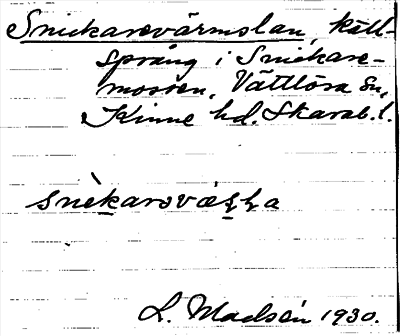 Snickarevärmslan, käll-
språng i Snickare-
mossen, Vättlösa sn,
Kinne hd. Skarab. l.
L. Madsén 1930.